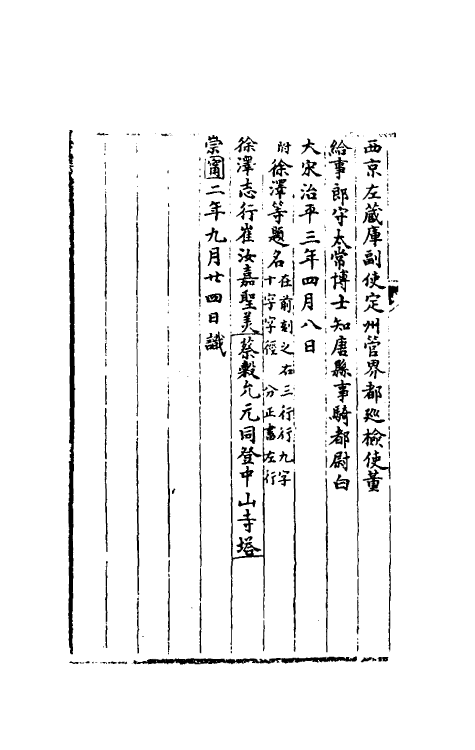 西京左蔵庫副使定州管界都廵檢使董
給事郎守太常博士知唐縣事騎都尉白
大宋治平三年四月八日
附徐澤等題名
在前刻之右三行行九字
十字字徑 分正書左行
徐澤志行崔汝嘉聖美蔡穀允元同登中山寺塔
崇甯二年九月廿四日識